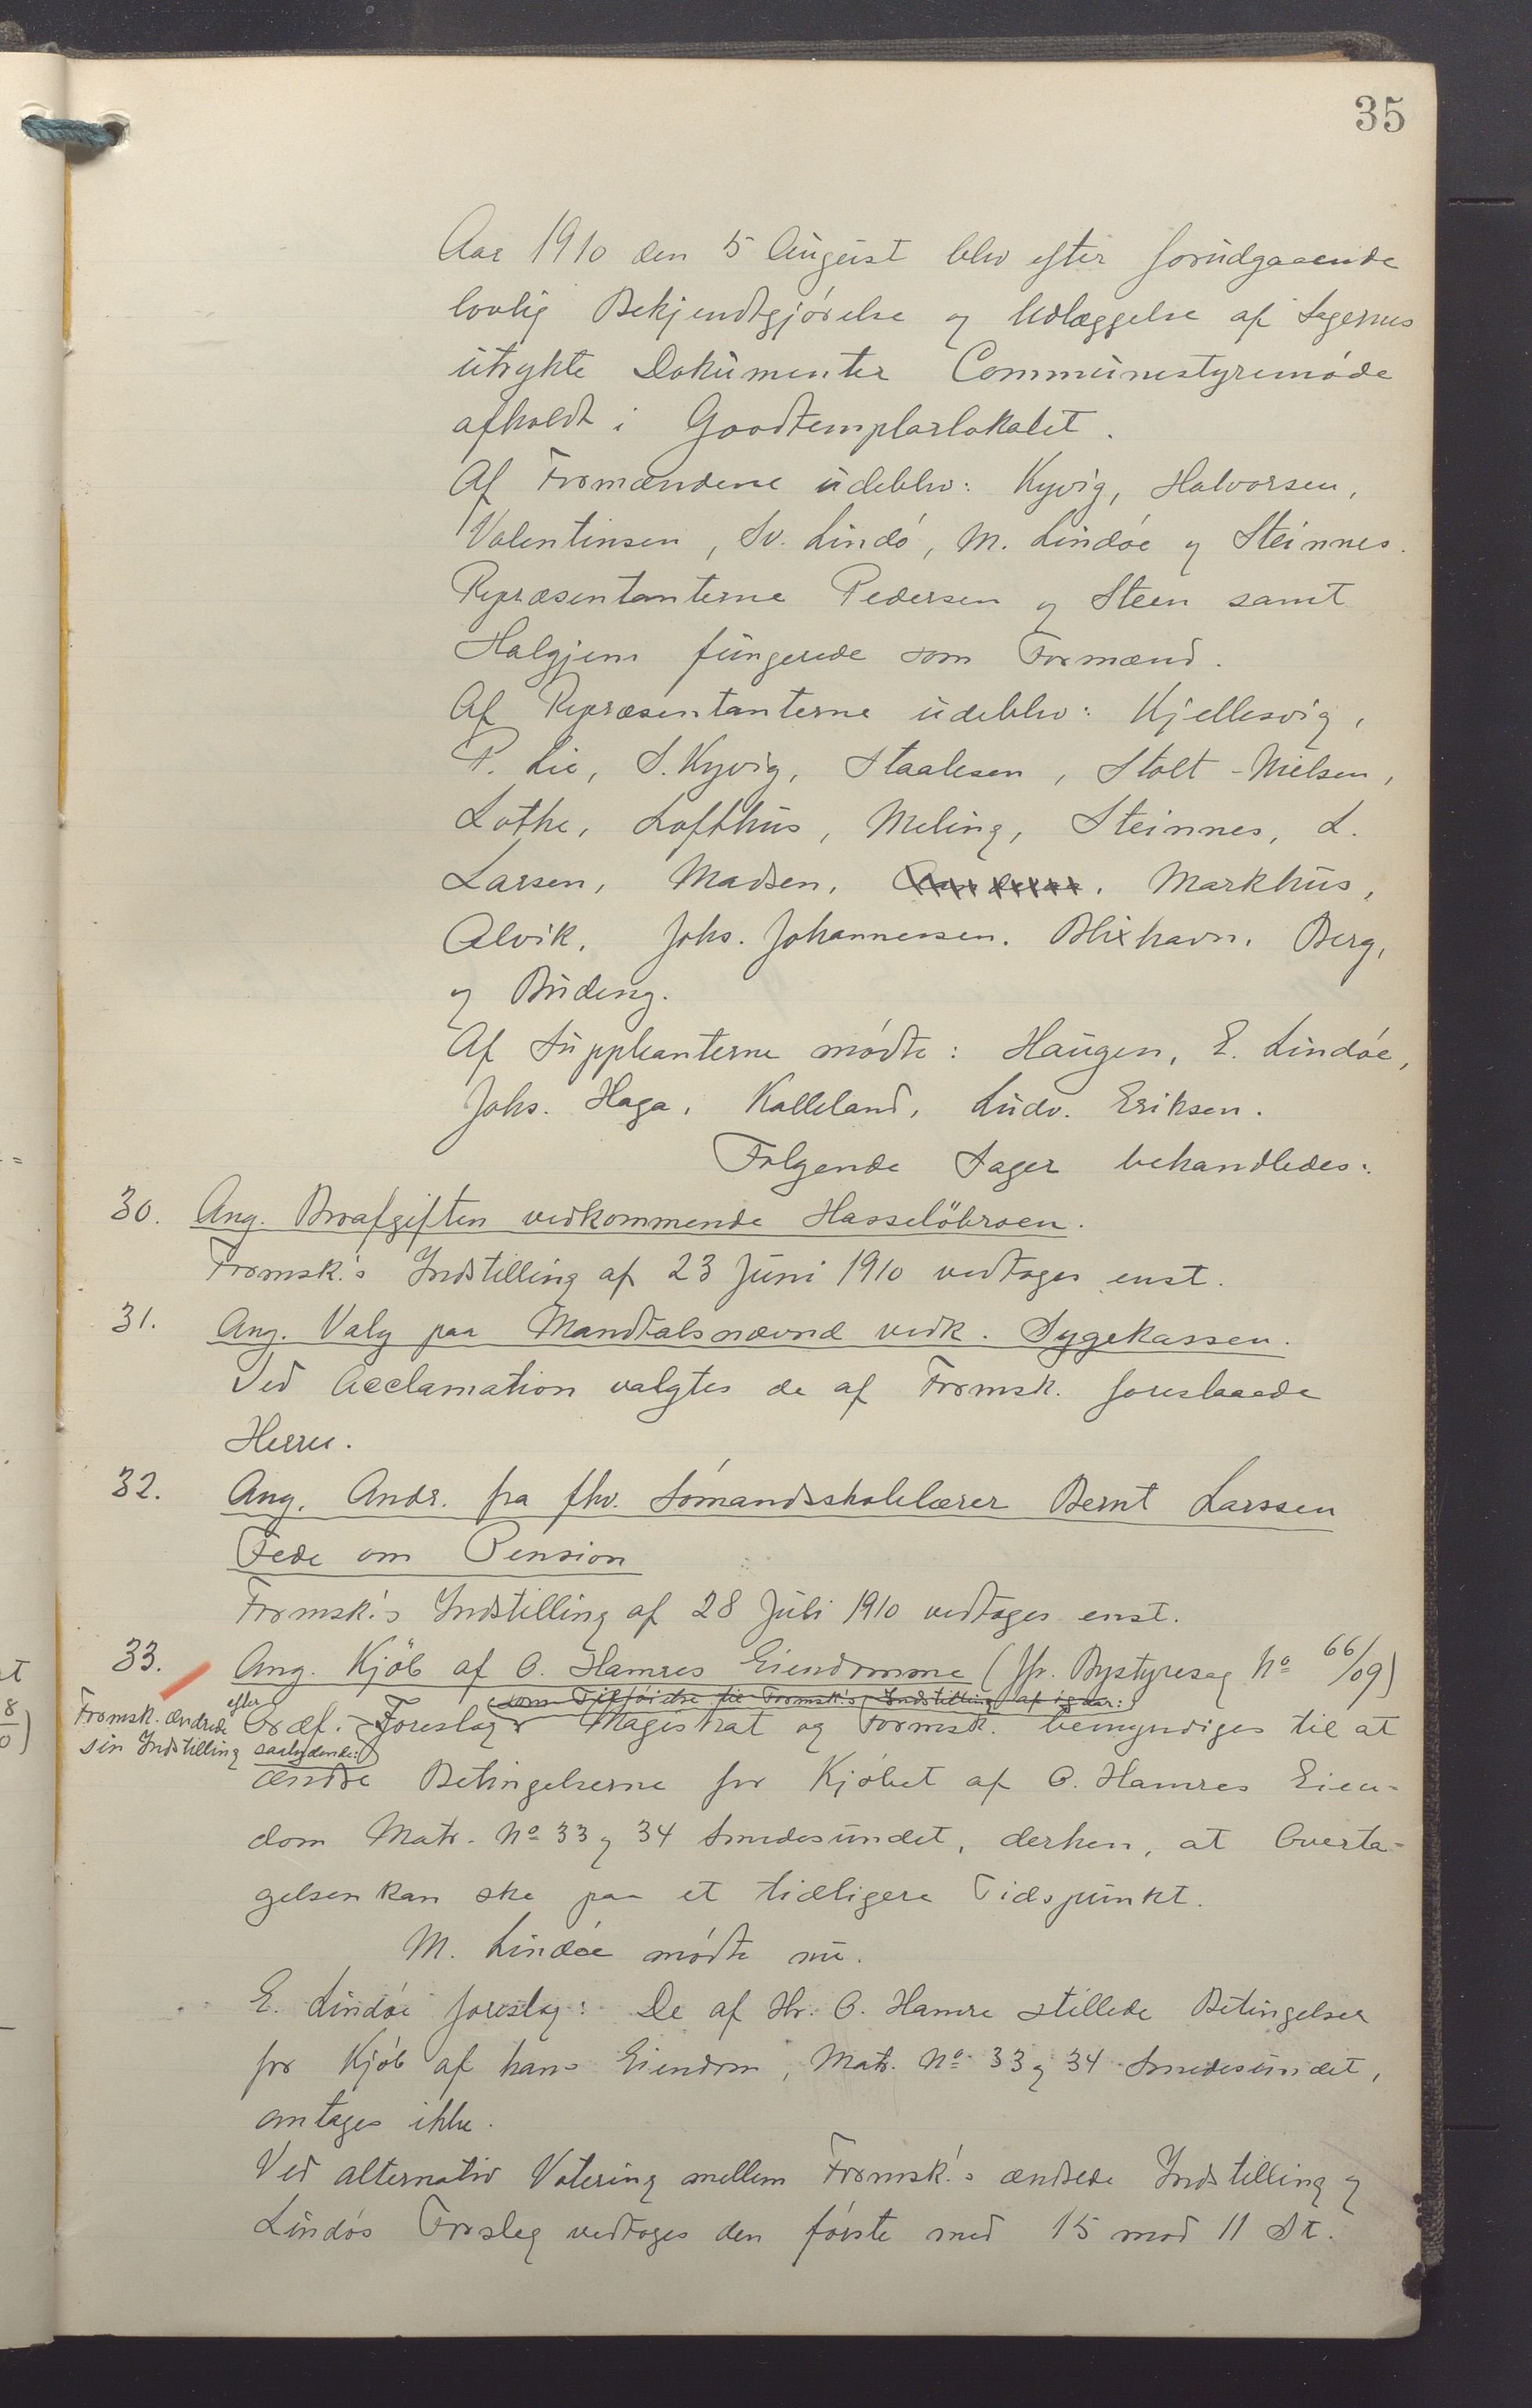 35
Aar 1910 den 5 August blev efter forudgaaende
lovlig Bekjendtgjörelse og Udlæggelse af Sagernes
utrykte Dokumenter Communestyremöde
afholdt i Goodtemplarlokalet.
Af Formændene udeblev: Kyvig, Halvorsen,
Valentinsen, Sv. Lindö, M. Lindöe og Steinnes.
Repræsentanterne Pedersen og Steen samt
Halgjem fungerede som Formænd.
Af Repræsentanterne udeblev: Kjellesvig,
P. Lie, S. Kyvig, Staalesen, Stolt-Nielsen,
Lothe, Lofthus, Meling, Steinnes, L.
Larsen, Madsen, Markhus,
Alvik, Johs. Johannessen. Blixhavn, Berg,
og Buding.
Af Suppleanterne mödte: Haugen, E. Lindöe,
Johs. Haga, Kalleland, Ludv. Eriksen.
Følgende Sager behandledes:
30. Ang. Broafgiften vedkommende Hasselöbroen.
Formsk.'s Indstilling af 23 Juni 1910 vedtoges enst.
31. Ang. Valg paa Mandtalsnævnd vedk. Sygekassen.
Ved Acclamation valgtes de af Formsk. foreslaaede
Herrer.
32. Ang. Andr. fra fhv. Sömandsskolelærer Bernt Larssen
Fede om Pension
Formsk.'s Indstilling af 28 Juli 1910 vedtoges enst.
33. Ang. Kjöb af O. Hamres Eiendomme (jfr. Bystyresag No 66/09)
som Tilföielse til Formsk's Indstilling af igaar:
Formsk. ændrede efter Ordf. Foreslag Magistrat og Formsk. bemyndiges til at
sin Indstilling saalydende:
ændre Betingelserne for Kjöbet af O. Hamres Eien-
dom Matr. No 33 og 34 Smedesundet, derhen, at Overta-
gelsen kan ske paa et tidligere Tidspunkt.
M. Lindöe mödte nu.
E. Lindöe foreslog: De af Hr. O. Hamre stillede Betingelser
for Kjöb af hans Eiendom, Matr. No 33 og 34 Smedesundet,
antages ikke.
Ved alternativ Votering mellem Formsk.'s ændrede Indstilling og
Lindös Forslag vedtoges den förste med 15 mod 11 St.